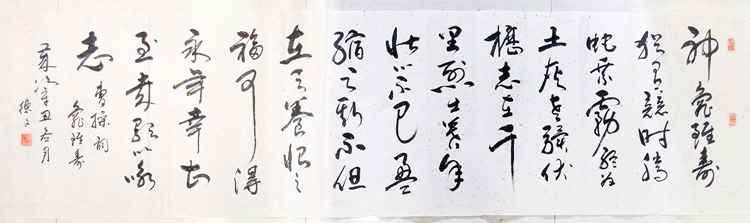 神龜雖壽
猶有競時騰
蛇乘霧終為
土灰老驥伏
櫪志在千
里烈士暮年
壯心不已盈
縮之期不但
在天養怡之
福可得
永年幸甚
至哉歌以咏
志
曹操詞
龜雖壽
歲次辛丑冬月